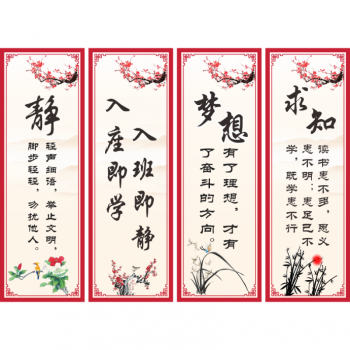 静
轻声细语，举止文明，
脚步轻轻，勿扰他人。
入班即静
入座即学
梦想
有了理想，才有
了奋斗的方向。
求知
读书患不多，思义
患不明；患足已不
学，既学患不行